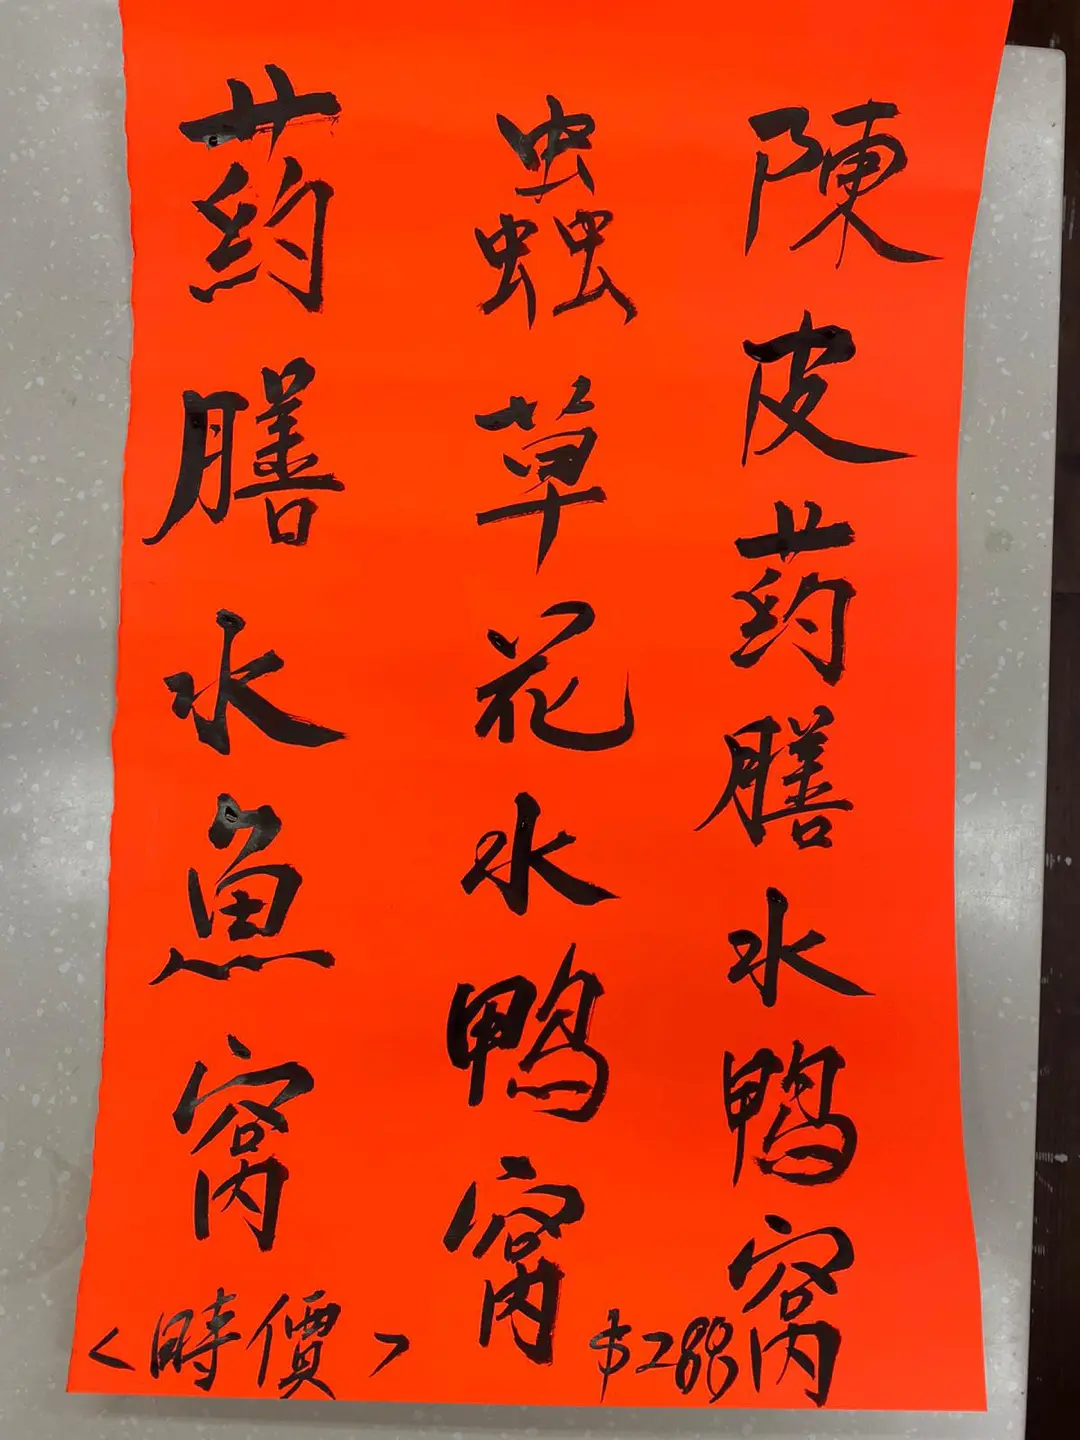 陳皮药膳水鴨窩
蟲草花水鴨窩
$288
药膳水魚窩
<時價>